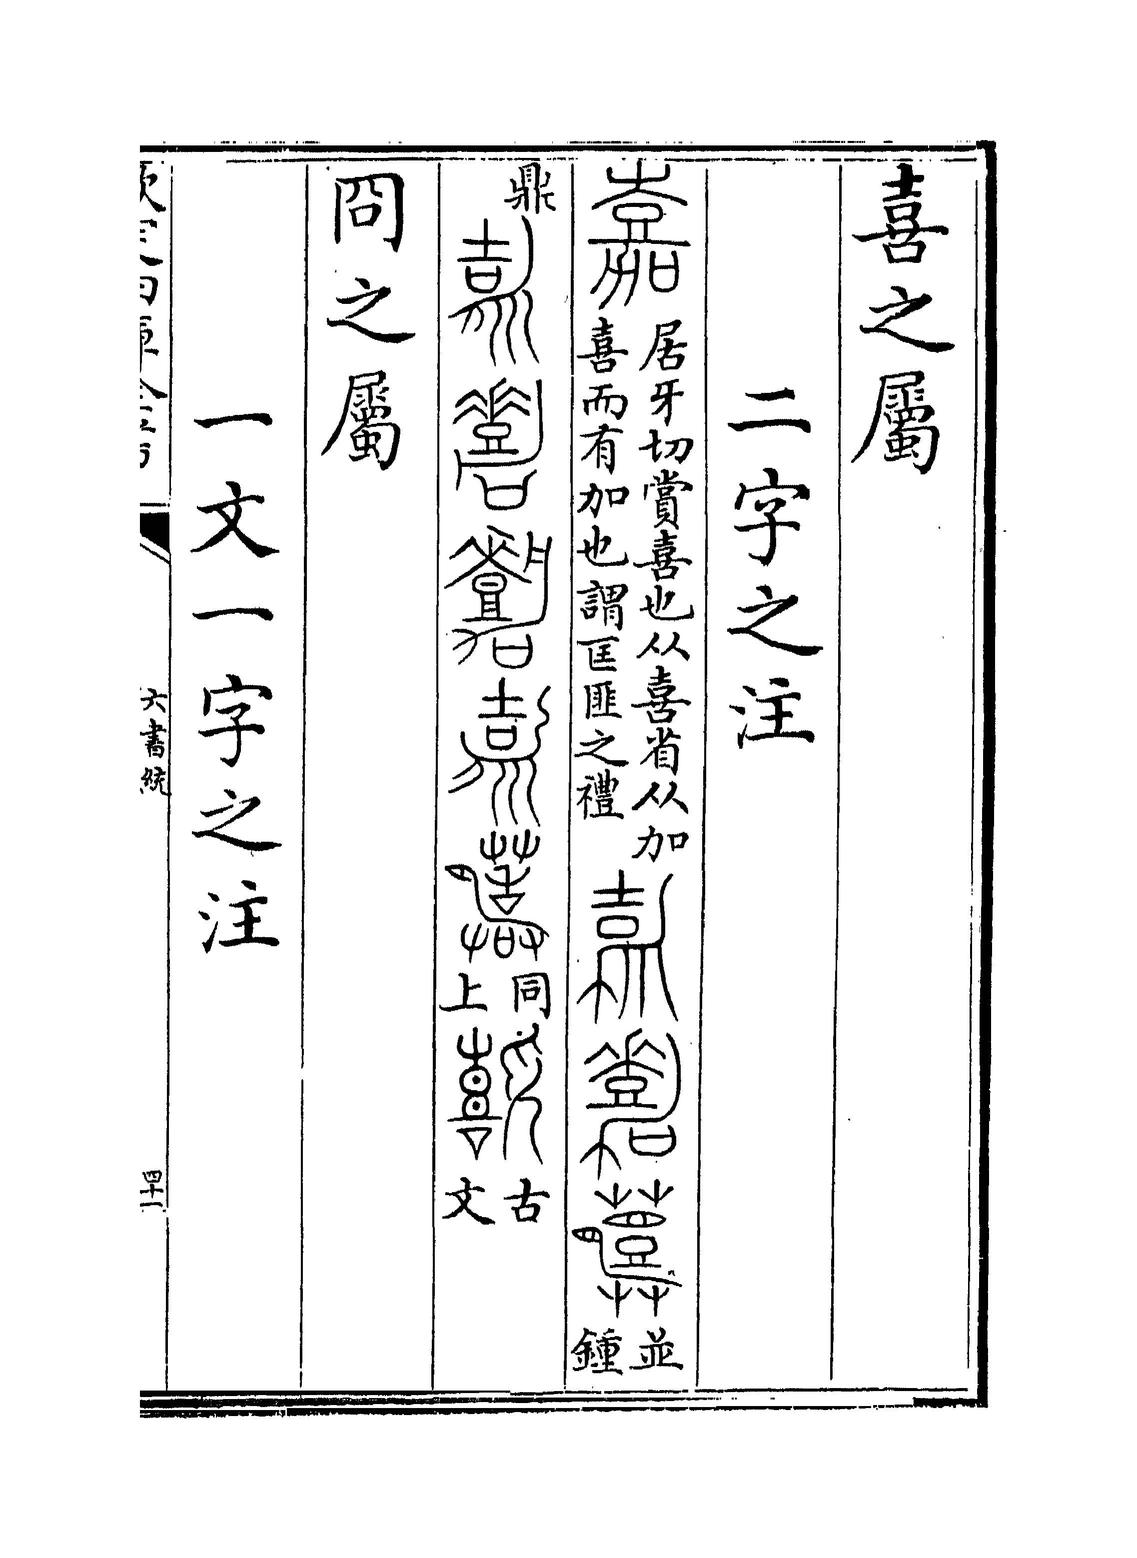 喜之屬
二字之注
嘉居牙切賞喜也从喜省从加
喜而有加也謂匡匪之禮
並
鍾
鼎
同
上
古
文
冏之屬
一文一字之注
欽定四庫全書
六書統
四十一